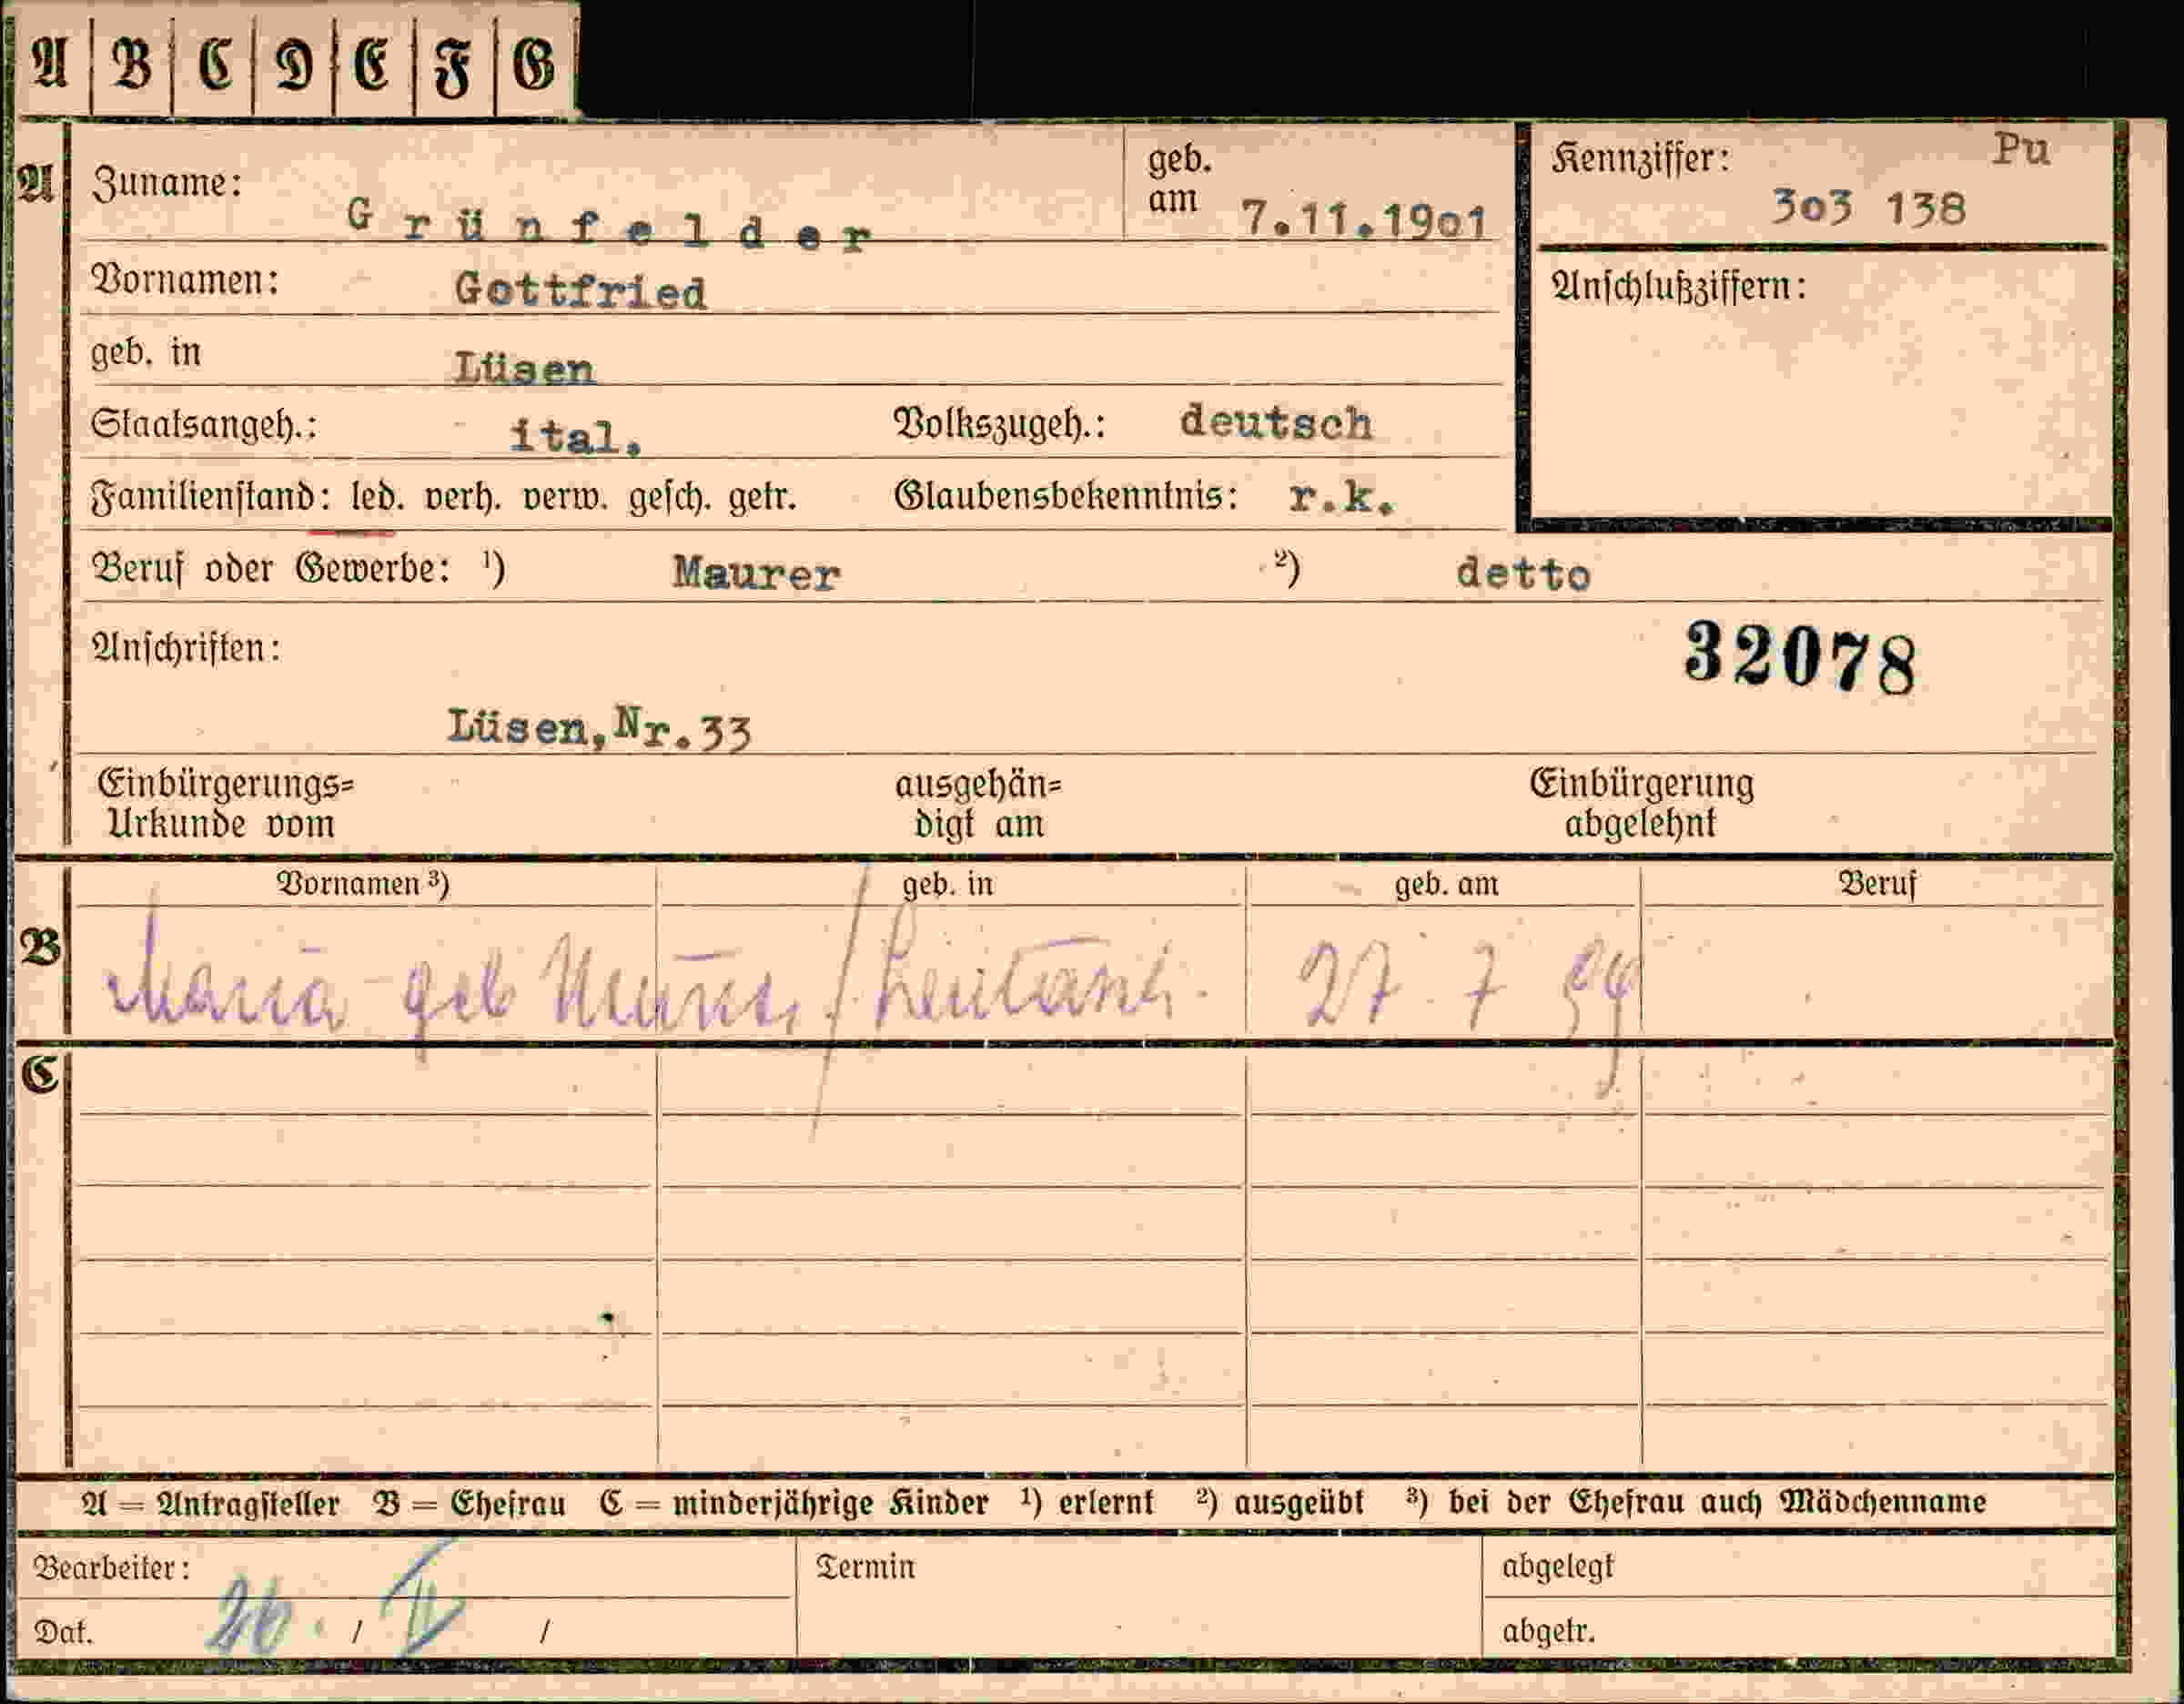 A B C D E F G
A Zuname: Grünfelder geb. am 7.11.1901 Kennziffer: Pu 303 138
Vornamen: Gottfried Anschlußziffern:
geb. in Lüsen
Staatsangeh.: ital. Volkszugeh.: deutsch
Familienstand: led. verh. verw. gesch. getr. Glaubensbekenntnis: r.k.
Beruf oder Gewerbe: ¹) Maurer ²) detto
Anschriften: 32078
Lüsen,Nr.33
Einbürgerungs= ausgehän= Einbürgerung
Urkunde vom digt am abgelehnt
Vornamen ³) geb. in geb. am Beruf
B Maria geb 27. 7
C
A = Antragsteller B = Ehefrau C = minderjährige Kinder ¹) erlernt ²) ausgeübt ³) bei der Ehefrau auch Mädchenname
Bearbeiter: Termin abgelegt
Dat. 26. / / abgetr.